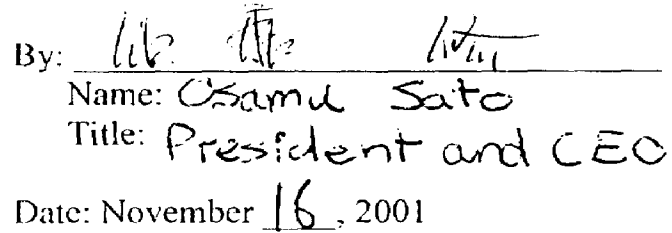 By:
Name: Osamu Sato
Title: President and CEO
Date: November 16, 2001